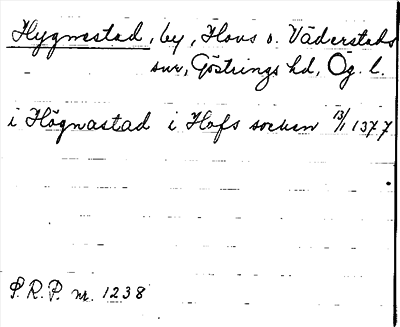 Hygnestad, by, Hovs o. Väderstads
snr, Göstrings hd, Ög. l.
i Högnastad i Hofs socken 13/1 1377
S.R.P. nr. 1238